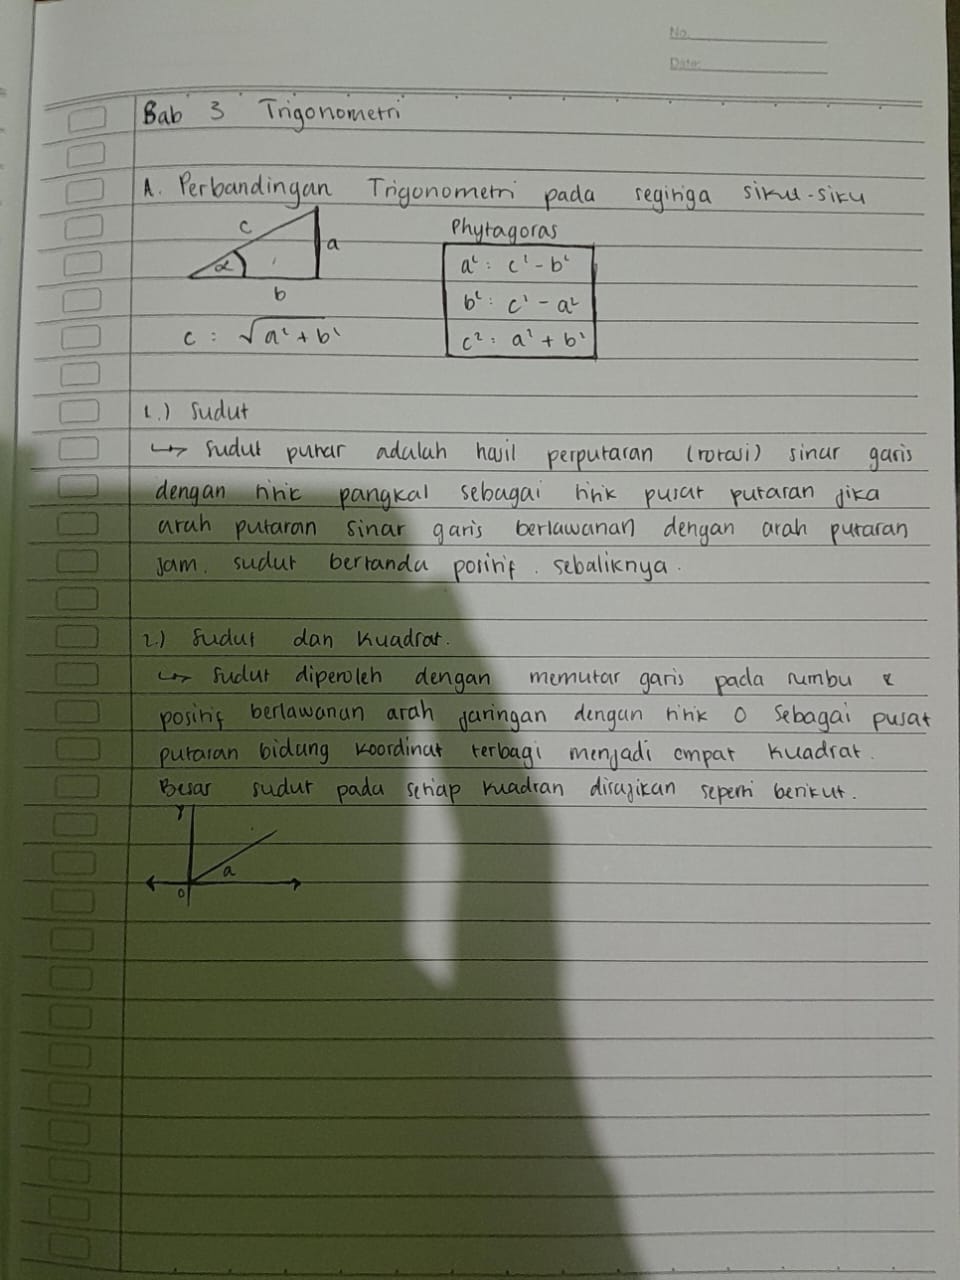 No.
Date:
Bab 3 Trigonometri
A. Perbandingan Trigonometri pada segitiga siku-siku
c
a
α
b
c : √a² + b²
Phytagoras
a² : c² - b²
b² : c² - a²
c² : a² + b²
1.) Sudut
↳ Sudut putar adalah hasil perputaran (rotasi) sinar garis
dengan titik pangkal sebagai titik pusat putaran jika
arah putaran sinar garis berlawanan dengan arah putaran
jam. sudut bertanda positif. sebaliknya.
2.) Sudut dan Kuadrat.
↳ Sudut diperoleh dengan memutar garis pada sumbu x
positif berlawanan arah jaringan dengan titik O sebagai pusat
putaran bidang koordinat terbagi menjadi empat kuadrat.
Besar sudut pada setiap kuadran disajikan seperti berikut.
Y
a
O